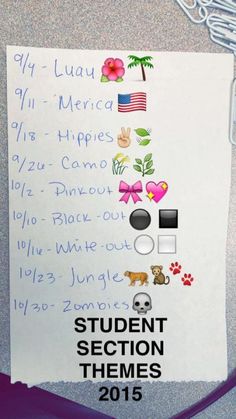 9/4 - Luau 🌺🌴
9/11 - 'Merica 🇺🇸
9/18 - Hippies ✌🍃
9/26 - Camo 🌾🌿
10/2 - Pinkout 🎀💖
10/10 - Black-out ⚫⬛
10/16 - White-out ⚪⬜
10/23 - Jungle 🐅🐒🐾
10/30 - Zombies 💀
STUDENT
SECTION
THEMES
2015